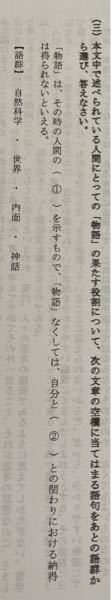 (三) 本文中で述べられている人間にとっての「物語」の果たす役割について、次の文章の空欄に当てはまる語句をあとの語群か
ら選び、答えなさい。
「物語」は、その時の人間の( ① )を示すもので、「物語」なくしては、自分と( ② )との関わりにおける納得
は得られないといえる。
【語群】 自然科学 ・ 世界 ・ 内面 ・ 神話